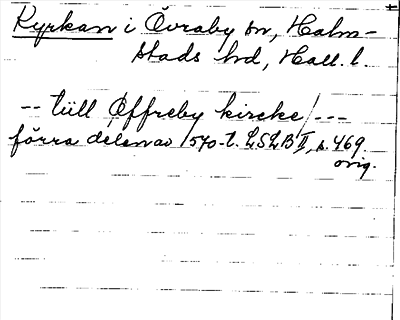 Kyrkan i Övraby sn, Halm-
stads hd, Hall. l.
-- tiill Øffreby kircke / ---
förra delen av 1540-t. LSLB II, s. 469.
orig.